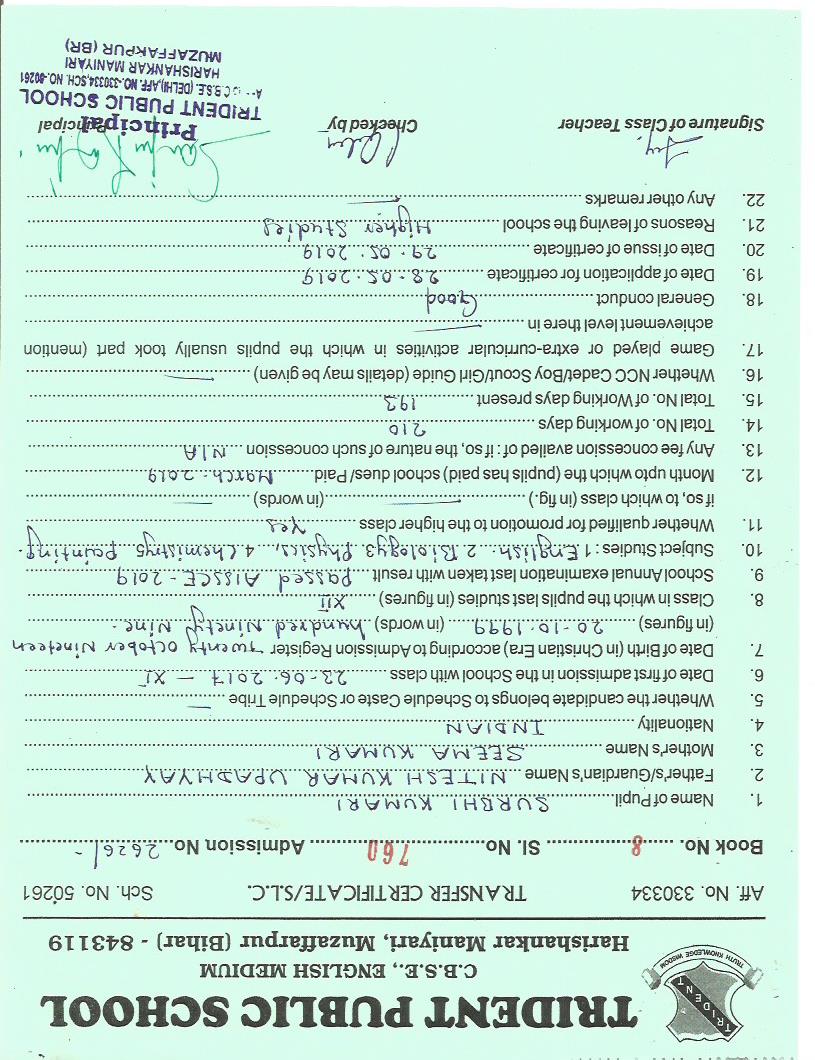 TRIDENT
TRUTH KNOWLEDGE WISDOM
TRIDENT PUBLIC SCHOOL
C.B.S.E., ENGLISH MEDIUM
Harishankar Maniyari, Muzaffarpur (Bihar) - 843119
Aff. No. 330334 TRANSFER CERTIFICATE/S.L.C. Sch. No. 50261
Book No. 8 Sl. No. 760 Admission No. 2626/-
1. Name of Pupil SURBHI KUMARI
2. Father's/Guardian's Name NITESH KUMAR UPADHYAY
3. Mother's Name SEEMA KUMARI
4. Nationality INDIAN
5. Whether the candidate belongs to Schedule Caste or Schedule Tribe —
6. Date of first admission in the School with class 23.06.2017 — XI
7. Date of Birth (in Christian Era) according to Admission Register Twenty October Nineteen
(in figures) 20-10-1999 (in words) hundred Ninety Nine.
8. Class in which the pupils last studies (in figures) XII
9. School Annual examination last taken with result Passed AISSCE-2019
10. Subject Studies : 1 English 2 Biology 3 Physics 4 Chemistry 5 Painting.
11. Whether qualified for promotion to the higher class Yes
if so, to which class (in fig.) — (in words) —
12. Month upto which the (pupils has paid) school dues/ Paid March-2019
13. Any fee concession availed of : if so, the nature of such concession N/A
14. Total No. of working days 210
15. Total No. of Working days present 193
16. Whether NCC Cadet/Boy Scout/Girl Guide (details may be given) —
17. Game played or extra-curricular activities in which the pupils usually took part (mention
achievement level there in —
18. General conduct Good
19. Date of application for certificate 28.05.2019
20. Date of issue of certificate 29.05.2019
21. Reasons of leaving the school Higher Studies
22. Any other remarks —
Signature of Class Teacher Checked by Principal
Principal
TRIDENT PUBLIC SCHOOL
C.B.S.E. (DELHI), AFF. NO.-330334, SCH. NO.-50261
HARISHANKAR MANIYARI
MUZAFFARPUR (BR)